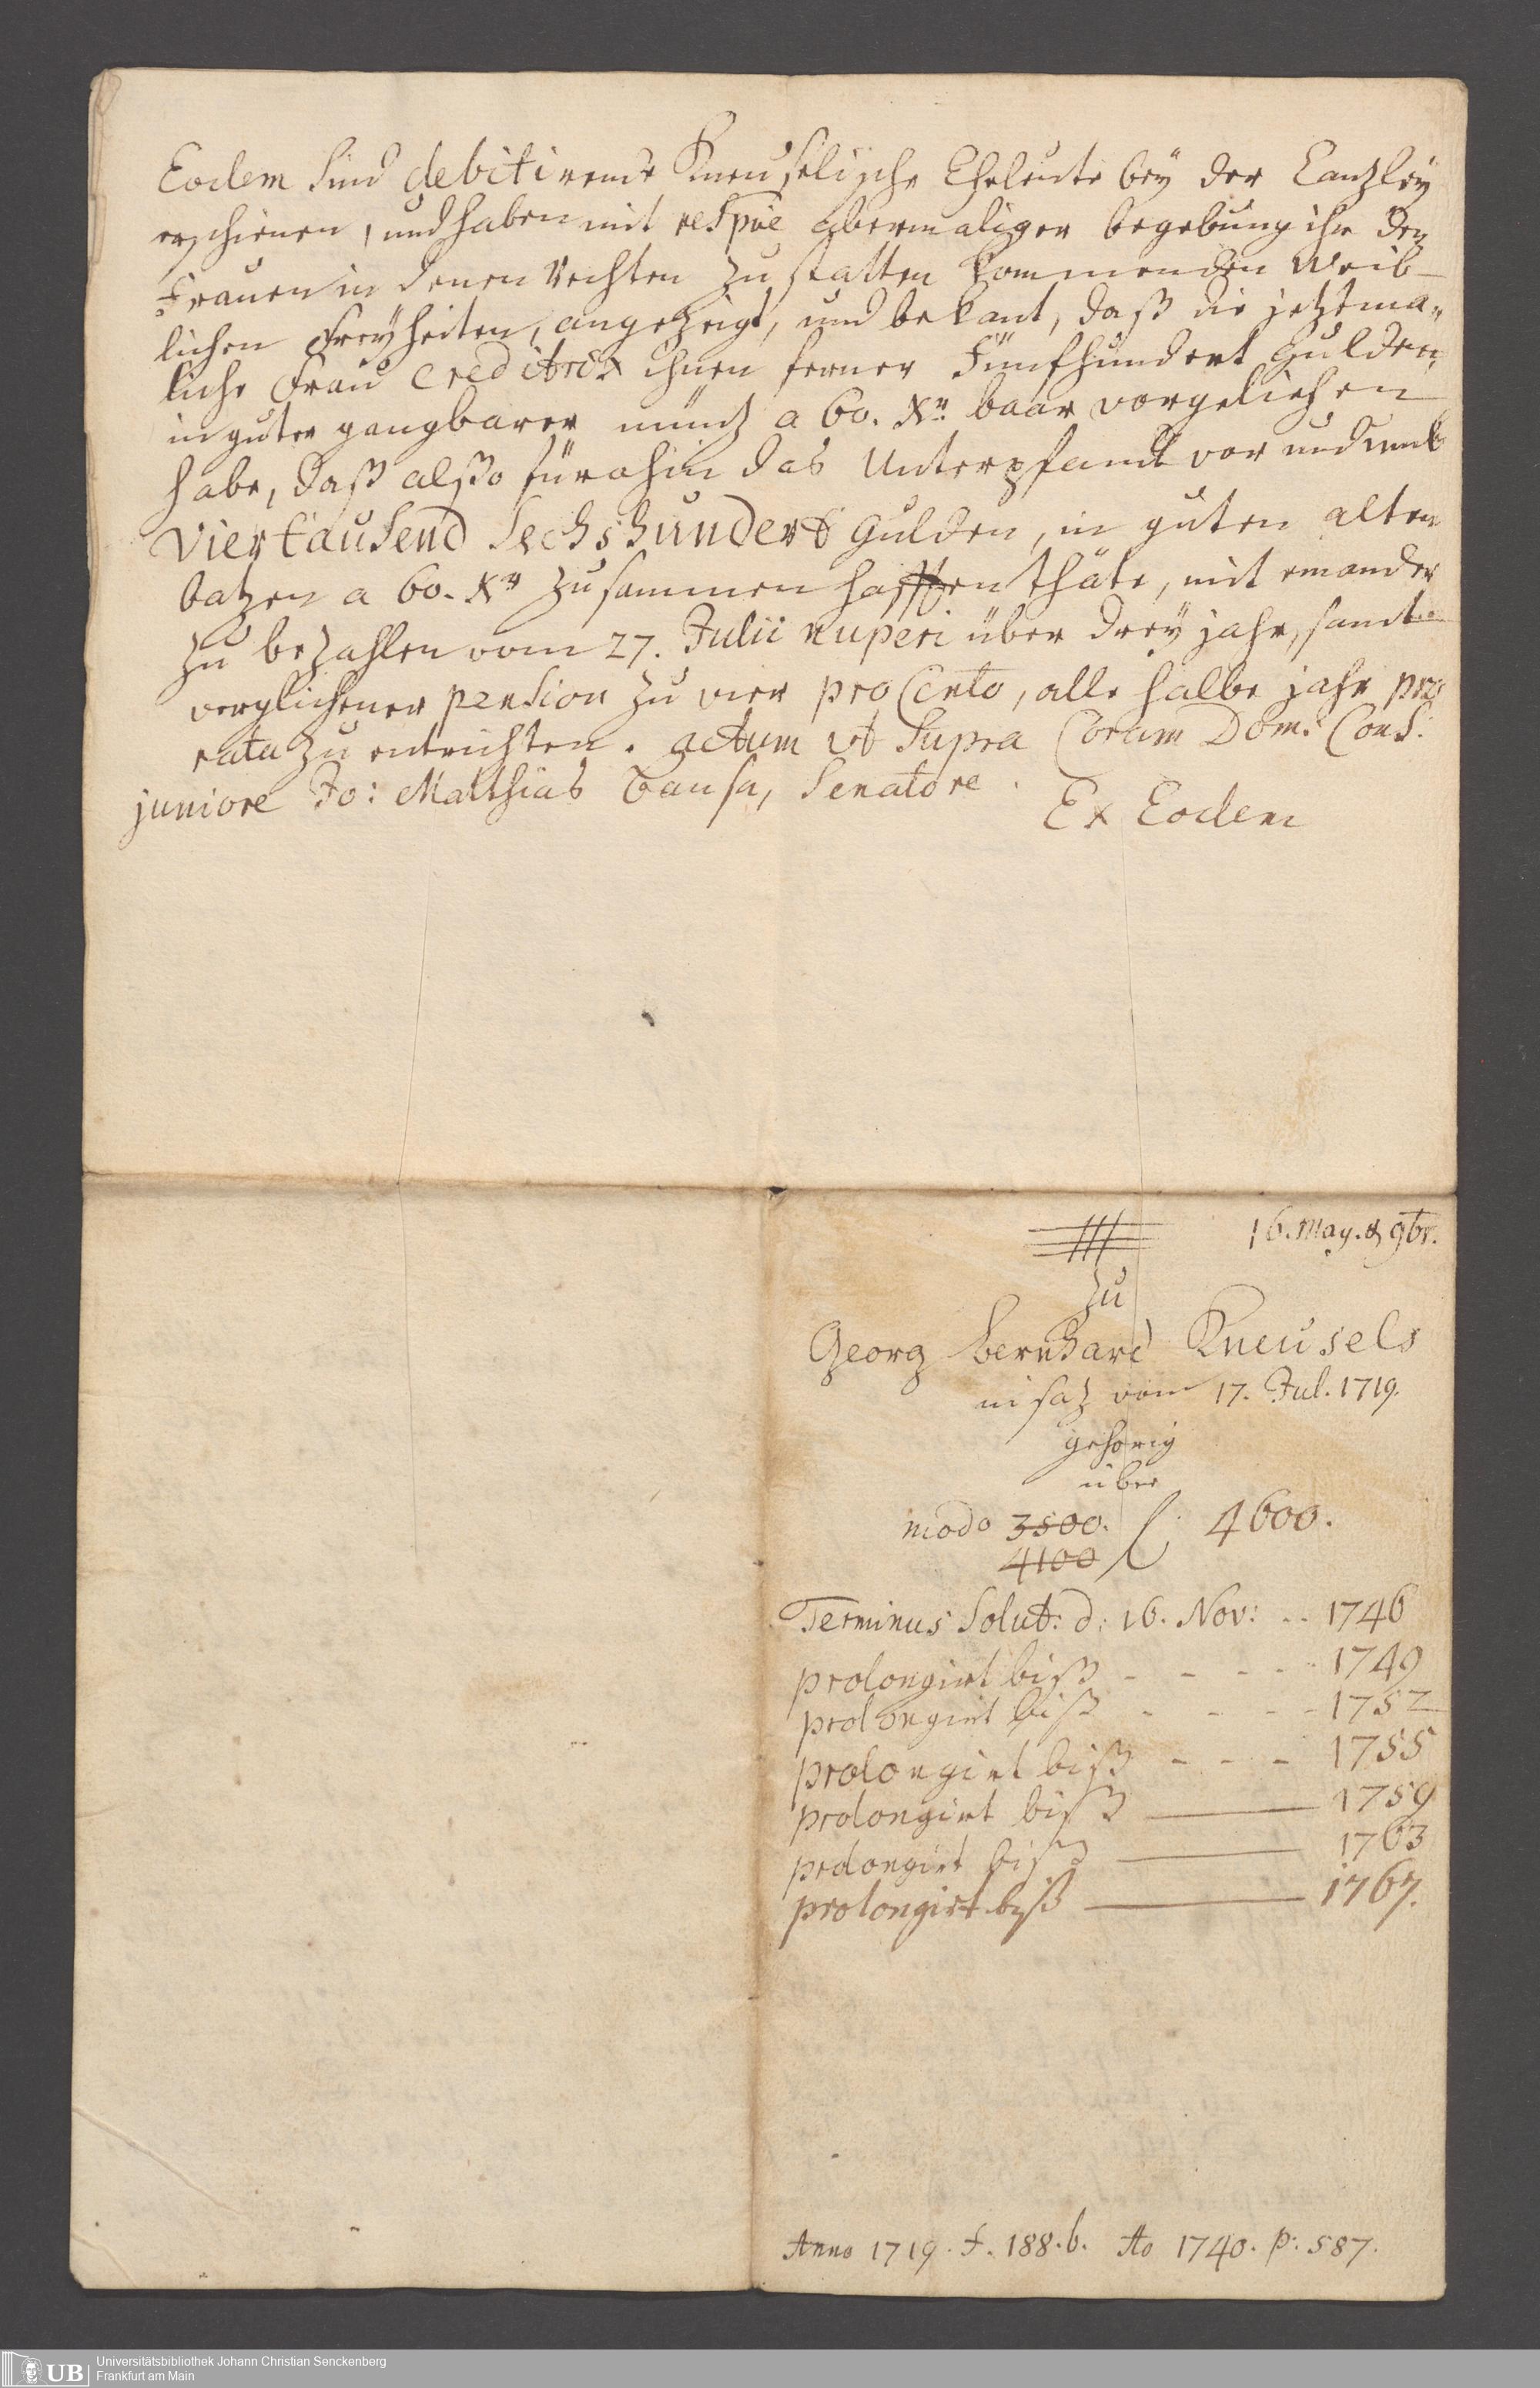 Eodem sind debitirende Kneuselische Eheleute bey der Canzley
erschienen, und haben mit respve abermaliger begebung ihr der
Frauen in denen Rechten zu statten kommenden Weib-
lichen Freyheiten, angezeigt, und bekant, daß die jetztma„
liche Frau Creditrix ihnen ferner Fünfhundert Gulden,
in guter gangbarer müntz a 60. Xr. baar vorgeliehen
habe, daß alßo fürohin das Unterpfandt vor und umb
Viertausend Sechshundert Gulden, in guten alten
batzen a 60. Xr zusammen hafften thäte, mit einander
zu bezahlen vom 27. Julii nuperi über drey jahr, samt
verglichener pension zu vier pro Cento, alle halbe jahr pro
rata zu entrichten. actum ut Supra Coram Dom: Cons:
juniore Jo: Matthias Bansa, Senatore.
Ex Eodem
16. May. & 9br.
zu
Georg Bernhard Kneusels
insatz vom 17. Jul. 1719.
gehörig
über
modo 3500. f. 4600.
4100
Terminus Solut: d. 16. Nov: .. 1746
prolongirt biß - - - - 1749
prolongirt biß - - - - 1752
prolongirt biß - - - 1755
prolongirt biß — 1759
prolongirt biß — 1763
prolongirt biß — 1767.
Anno 1719. f. 188.b. Ao 1740. p: 587.
UB Universitätsbibliothek Johann Christian Senckenberg
Frankfurt am Main